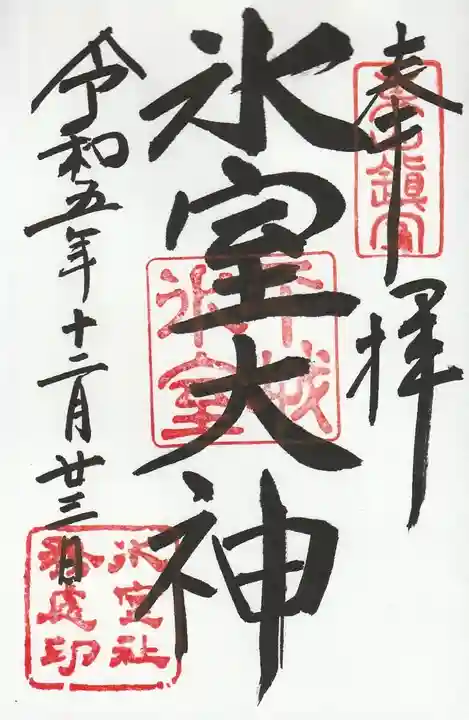 奉拝
氷室大神
平城
氷室
令和五年十二月廿三日
氷室社
務處印